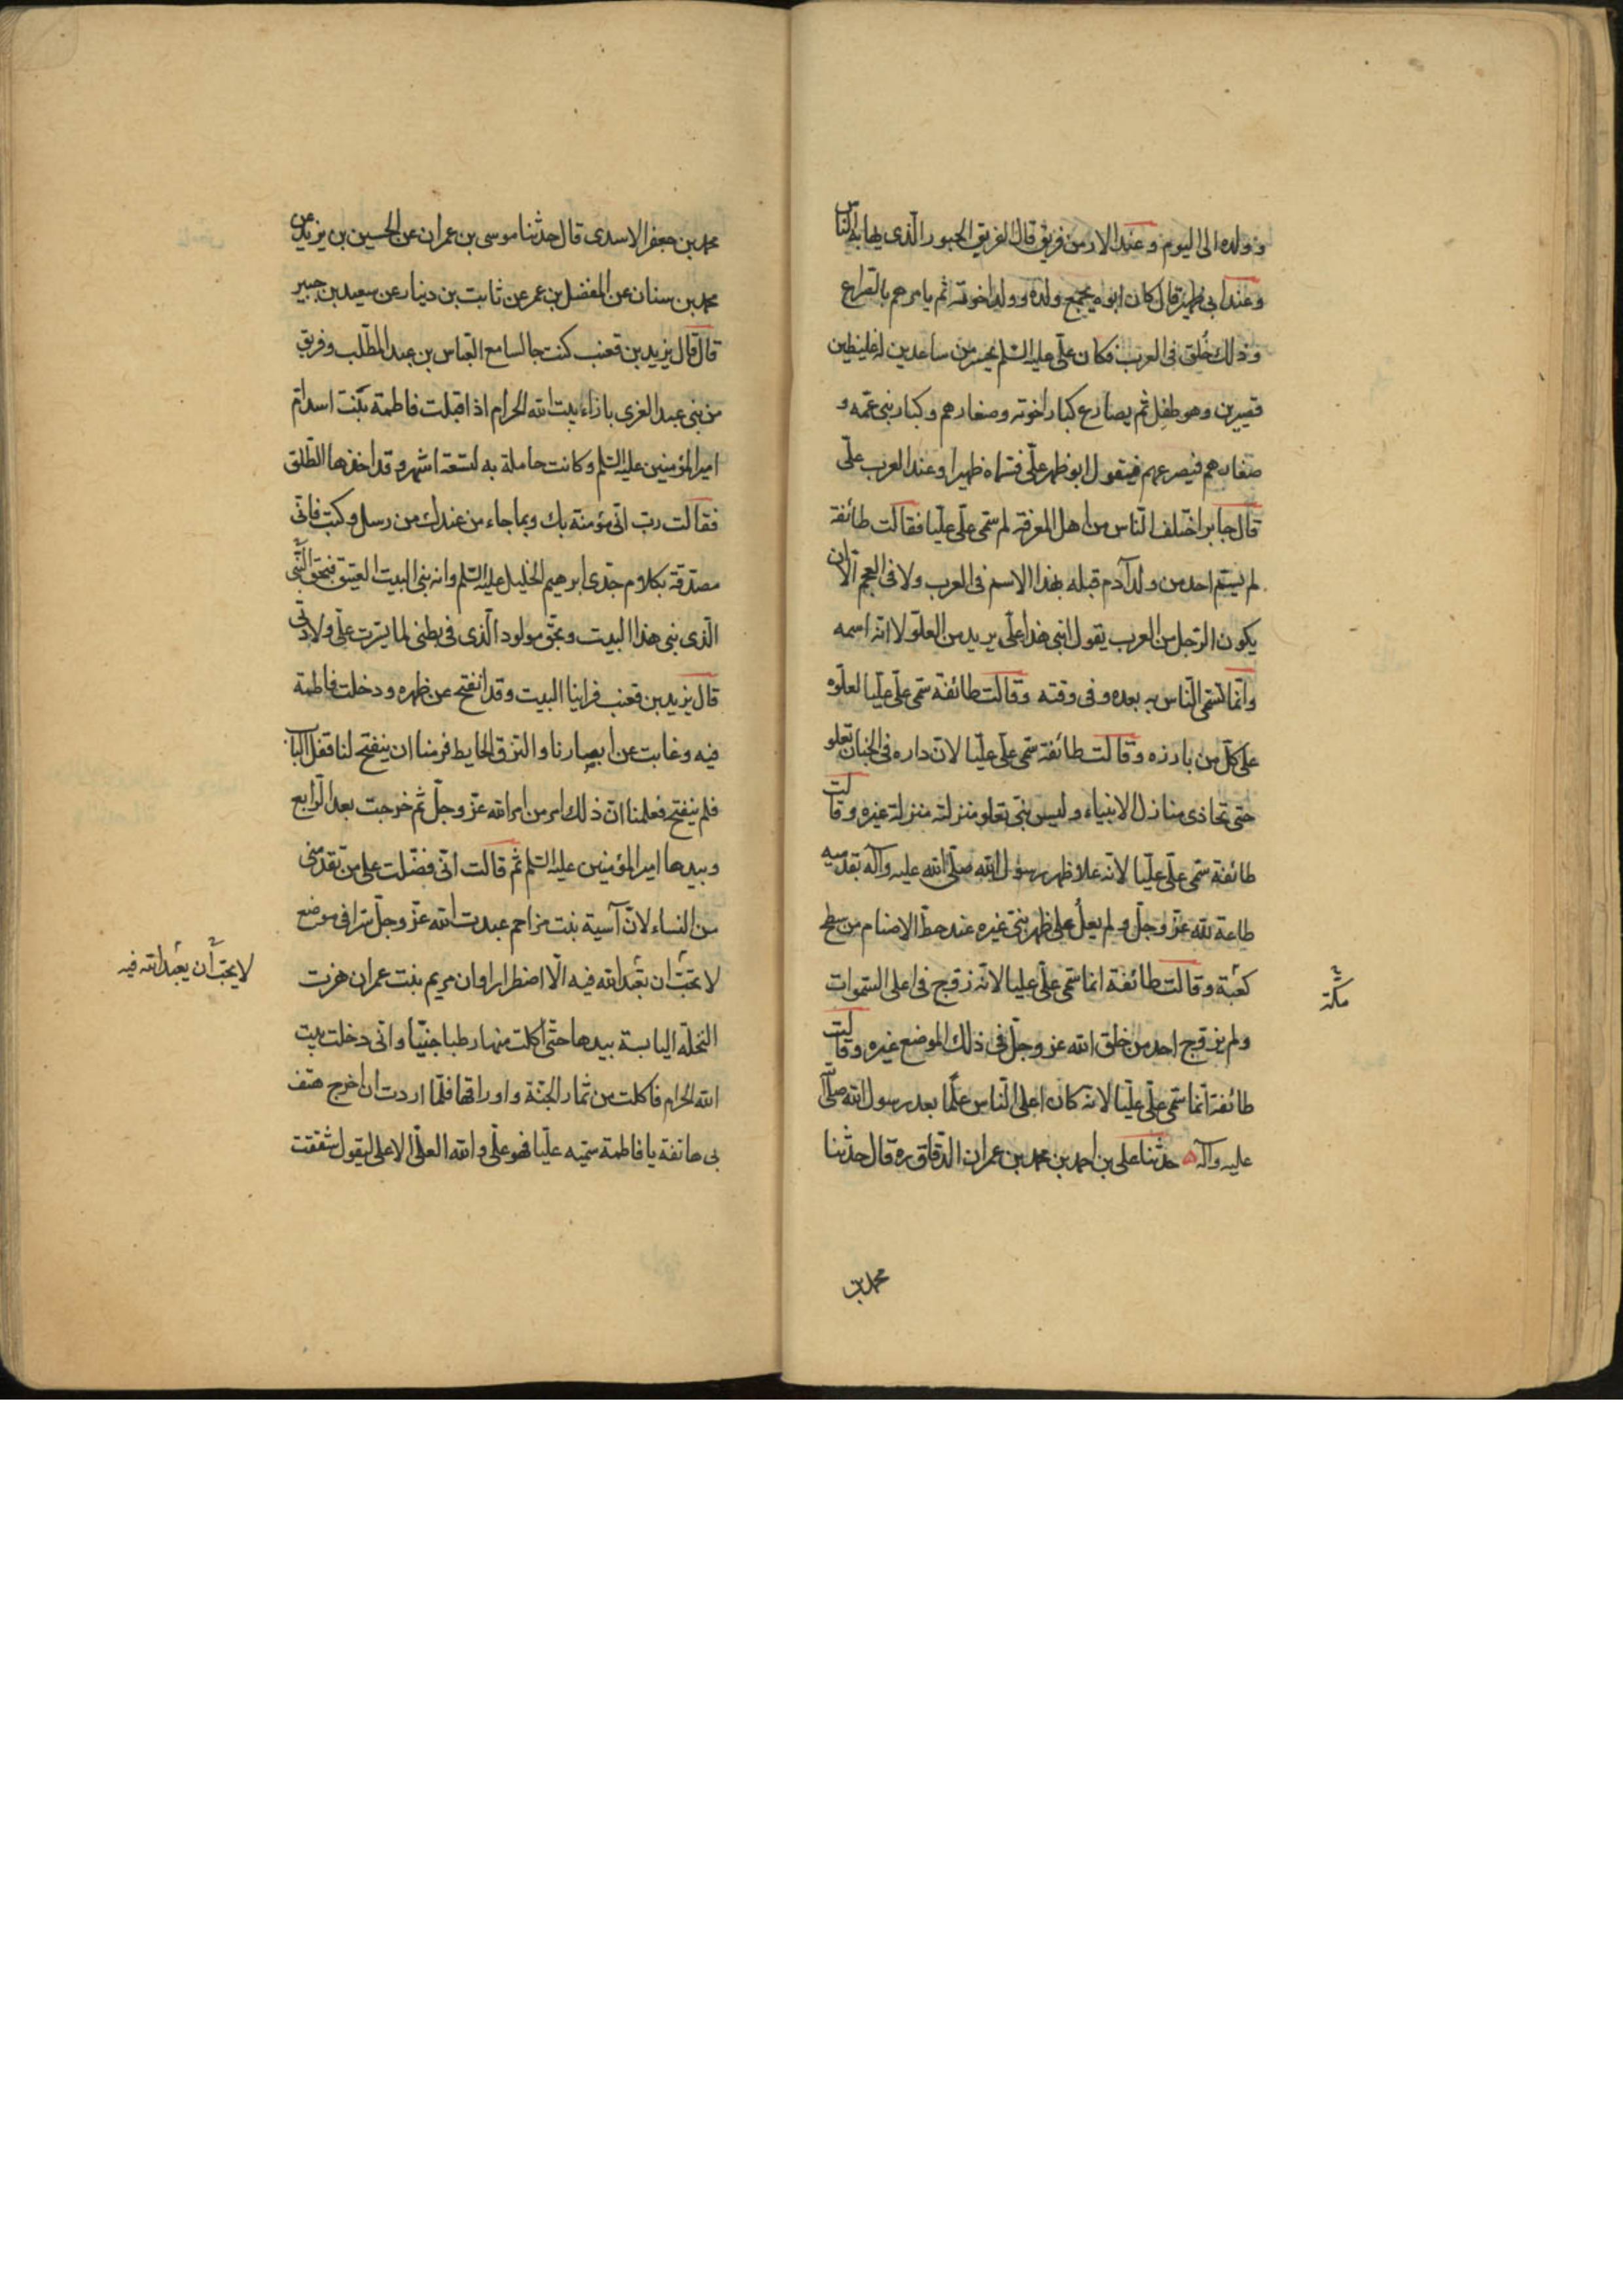 وولده الى اليوم وعند الارمن فريق قال الفريق الجسور الذى يهابه الناس
وعند ابى ظهير قال كان ابوه يجمع ولده وولد اخوته ثم يامرهم بالصراع
وذلك خلق فى العرب فكان على عليه السلم يحسر عن ساعدين له غليظين
قصيرين وهو طفل ثم يصارع كبار اخوته وصغارهم وكبار بنى عمه و
صغارهم فيصرعهم فيقول ابوه ظهر على فسماه ظهيرا وعند العرب على
قال جابر اختلف الناس من اهل المعرفة لم سمى على عليا فقالت طائفة
لم يسم احد من ولد آدم قبله بهذا الاسم فى العرب ولا فى العجم الا ان
يكون الرجل من العرب يقول ابنى هذا على يريد من العلو لا انه اسمه
وانما تسمى الناس به بعده وفى وقته وقالت طائفة سمى على عليا لعلوه
على كل من بارزه وقالت طائفة سمى على عليا لان داره فى الجنان تعلو
حتى تحاذى منازل الانبياء وليس نبى تعلو منزلته منزلة غيره وقالت
طائفة سمى على عليا لانه علا ظهر رسول الله صلى الله عليه وآله بقدميه
طاعة لله عز وجل ولم يعل على ظهر نبى غيره عند حط الاصنام من سطح
كعبة وقالت طائفة انما سمى على عليا لانه زوج فى اعلى السموات
مكة
ولم يزوج احد من خلق الله عز وجل فى ذلك الموضع غيره وقالت
طائفة انما سمى على عليا لانه كان اعلى الناس علما بعد رسول الله صلى الله
عليه وآله حدثنا على بن احمد بن محمد بن عمران الدقاق ره قال حدثنا
محمد بن
محمد بن جعفر الاسدى قال حدثنا موسى بن عمران عن الحسين بن يزيد عن
محمد بن سنان عن المفضل بن عمر عن ثابت بن دينار عن سعيد بن جبير
قال قال يزيد بن قعنب كنت جالسا مع العباس بن عبد المطلب وفريق
من بنى عبد العزى بازاء بيت الله الحرام اذ اقبلت فاطمة بنت اسد ام
امير المؤمنين عليه السلم وكانت حاملة به لتسعة اشهر وقد اخذها الطلق
فقالت رب انى مؤمنة بك وبما جاء من عندك من رسل وكتب فانى
مصدقة بكلام جدى ابرهيم الخليل عليه السلم وانه بنى البيت العتيق فبحق النبى
الذى بنى هذا البيت وبحق مولود الذى فى بطنى لما يسرت على ولادتى
قال يزيد بن قعنب فراينا البيت وقد انفتح عن ظهره ودخلت فاطمة
فيه وغابت عن ابصارنا والتزق الحايط فرمنا ان ينفتح لنا قفل الباب
فلم ينفتح فعلمنا ان ذلك امر من امر الله عز وجل ثم خرجت بعد الرابع
وبيدها امير المؤمنين عليه السلم ثم قالت انى فضلت على من تقدمنى
من النساء لان آسية بنت مزاحم عبدت الله عز وجل سرا فى موضع
لا تحب ان تعبد الله فيه الا اضطرارا وان مريم بنت عمران هزت
لا يحب ان يعبد الله فيه
النخلة اليابسة بيدها حتى اكلت منها رطبا جنيا وانى دخلت بيت
الله الحرام فاكلت من ثمار الجنة واوراقها فلما اردت ان اخرج هتف
بى هاتفة يا فاطمة سميه عليا فهو على والله العلى الاعلى ليقول شققت